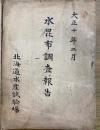 大正十年三月
水昆布調査報告
北海道水産試験場